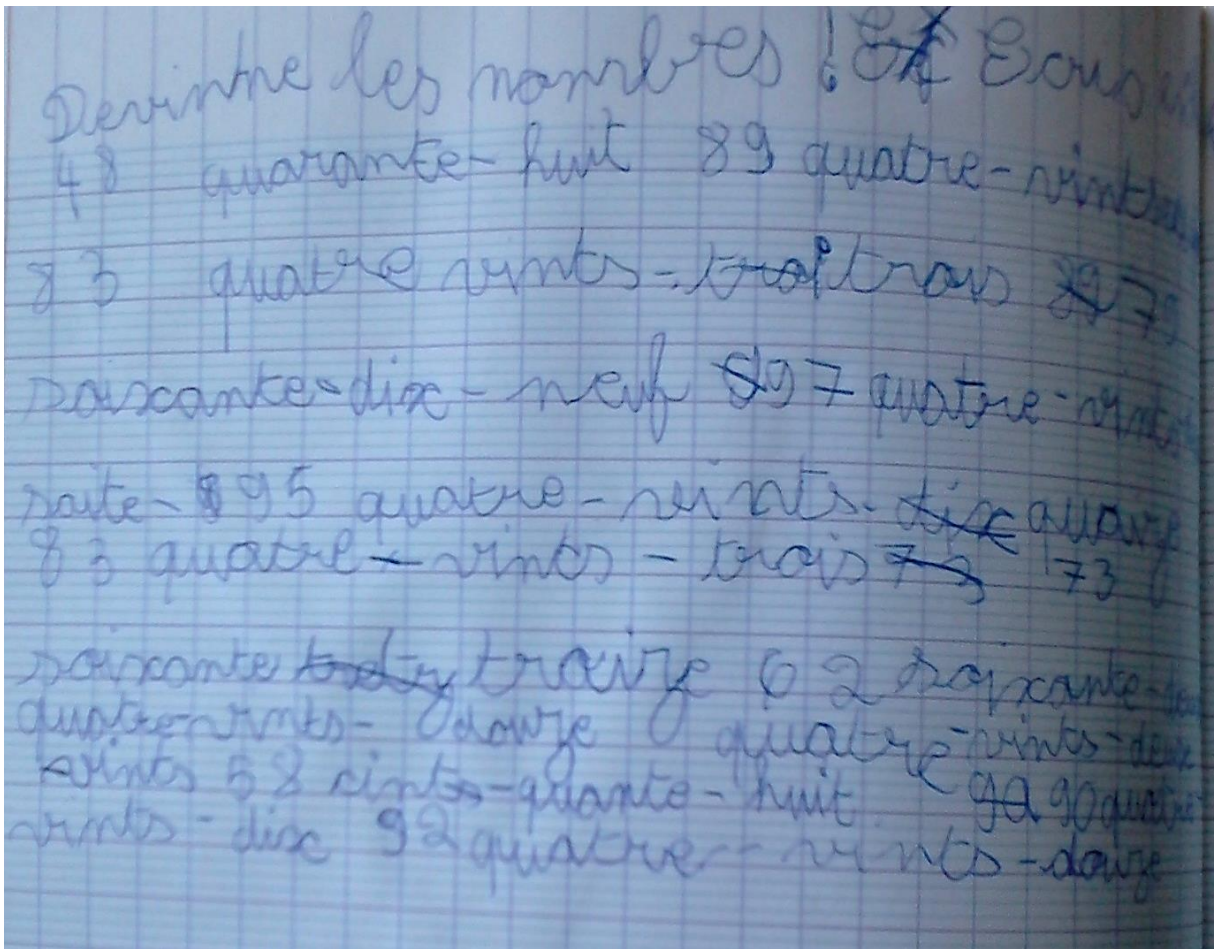 Devinthe les nombres !
48 quarante-huit 89 quatre-vints
83 quatre vints-trois 79
soixante-dix-neuf 97 quatre-vints
saite-95 quatre-vints-quinze
83 quatre-vints-trois 73
soixante traize 62 soixante-deux
quatre-vints-douze quatre-vints-deux
vints 58 cints-quante-huit 90 quatre
vints-dix 92 quatre-vints-douze